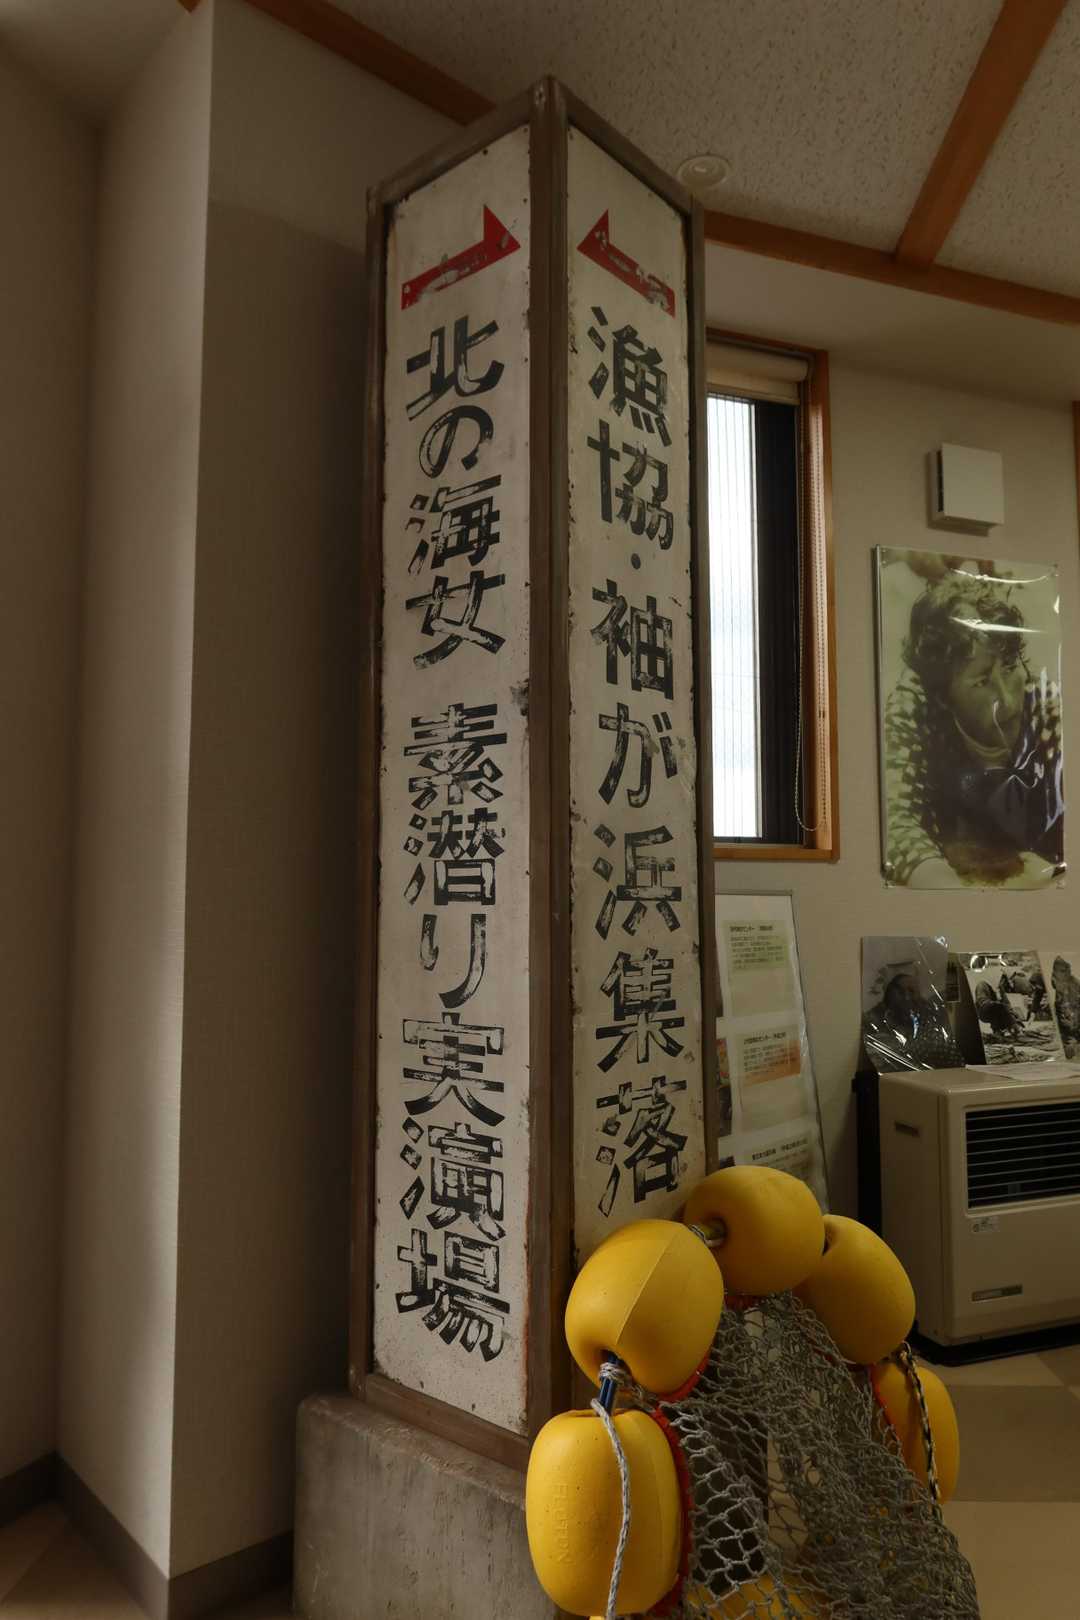 北の海女 素潜り実演場
漁協・袖が浜集落